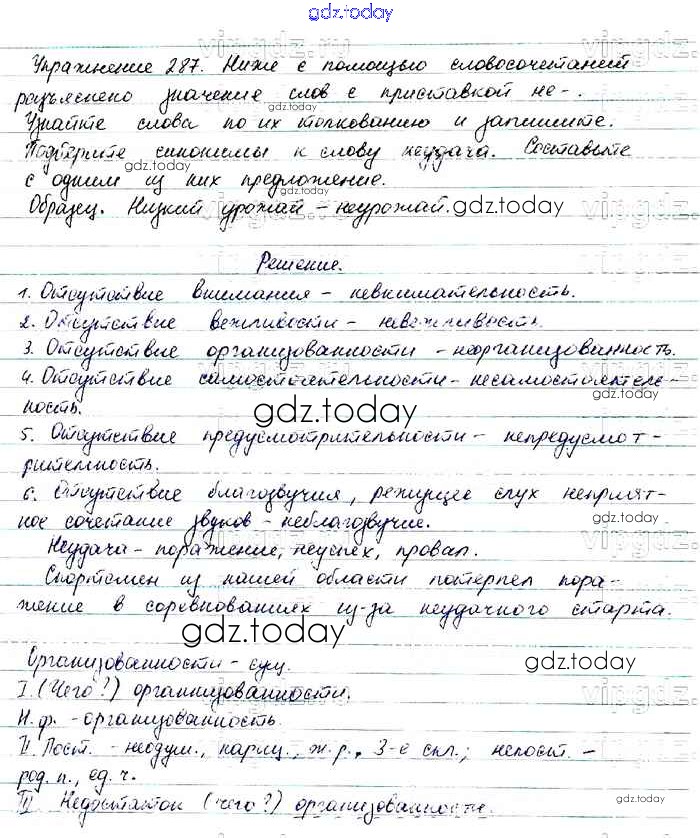 gdz.today
Упражнение 287. Ниже с помощью словосочетаний
разъяснено значение слов с приставкой не-.
Узнайте слова по их толкованию и запишите.
Подберите синонимы к слову неудача. Составьте
с одним из них предложение.
Образец. Низкий урожай – неурожай.
Решение.
1. Отсутствие внимания – невнимательность.
2. Отсутствие вежливости – невежливость.
3. Отсутствие организованности – неорганизованность.
4. Отсутствие самостоятельности – несамостоятель-
ность.
5. Отсутствие предусмотрительности – непредусмот-
рительность.
6. Отсутствие благозвучия, режущее слух неприят-
ное сочетание звуков – неблагозвучие.
Неудача – поражение, неуспех, провал.
Спортсмен из нашей области потерпел пора-
жение в соревнованиях из-за неудачного старта.
Организованности – сущ.
I. (Чего?) организованности.
Н. ф. – организованность.
II. Пост. – неодуш., нариц., ж. р., 3-е скл.; непост. –
род. п., ед. ч.
III. Недостаток (чего?) организованности.